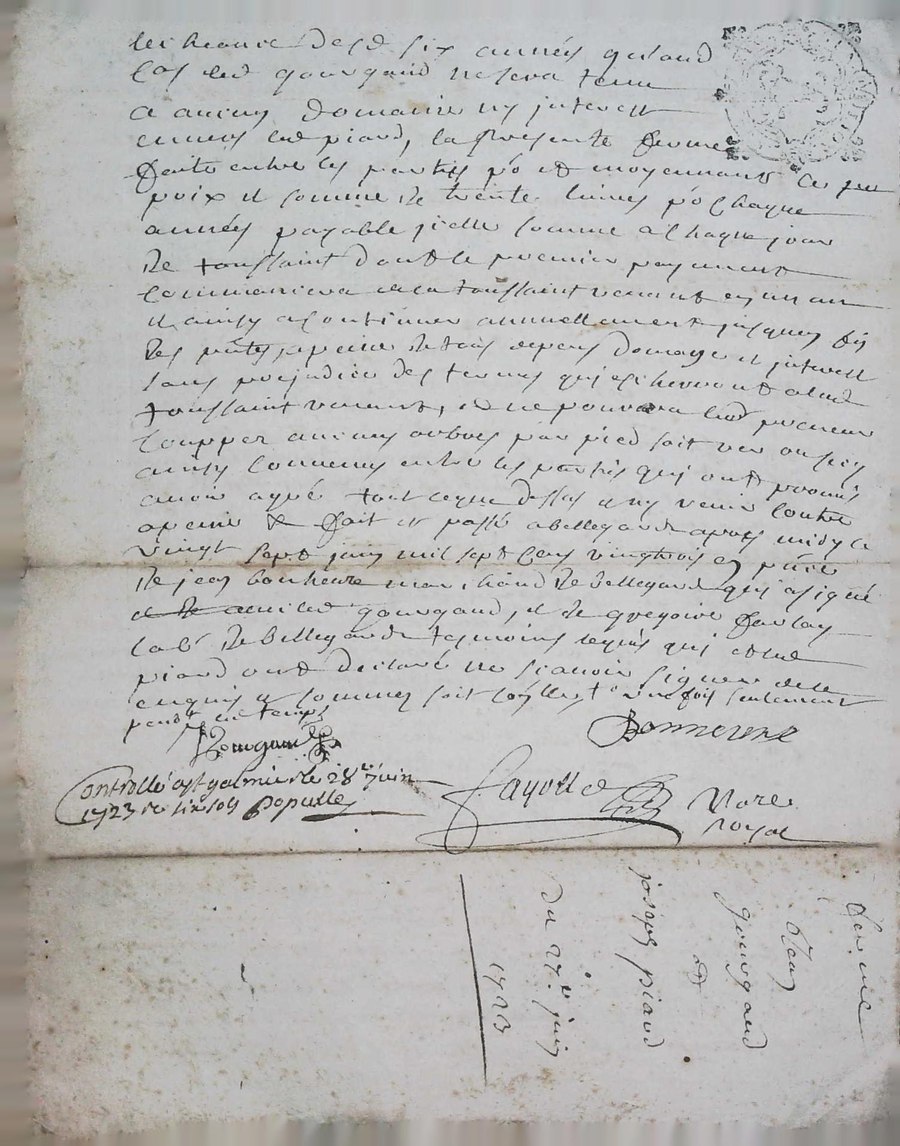 des six années quand
cas led gourgand ne sera tenu
a aucun domaire ny interest
envers led piard, la presente ferme
faite entre les parties po et moyennant le
poix et somme de trente livres po chaque
années payable jcelle somme a chaque jour
de toussaint dont le premier payement
commancera a la toussaint venant en un an
et ainsy a continuer annuellement jusques
des ptes, a peine de tous depens domage et interest
sans prejudice des termes qui echerront a lad
toussaint venant, et ne pourra led preneur
coupper aucuns arbres par pied soit ver ou secq
ainsy convenu entre les parties qui ont promis
avoir agreé tout ce que dessus a ny venir contre
a peine & fait et passé a bellegarde apres midy le
vingt sept juin mil sept cens vingtrois en pnce
de jean bonheure marchand de bellegarde qui a signé
avec led gourgand, et de gregoire
lab. de bellegarde tesmoins requis qui et led
piard ont declaré ne scavoir signer de ce
enquis et sommez soit une fois seulement
pendt led temps
Gourgand
Bonneure
Controllé a st galmier le 28e juin
1723 R six sols Populle
fayolle Nore
royal
ferme
Jean
gourgand
et
joseph piard
du 27e juin
1723